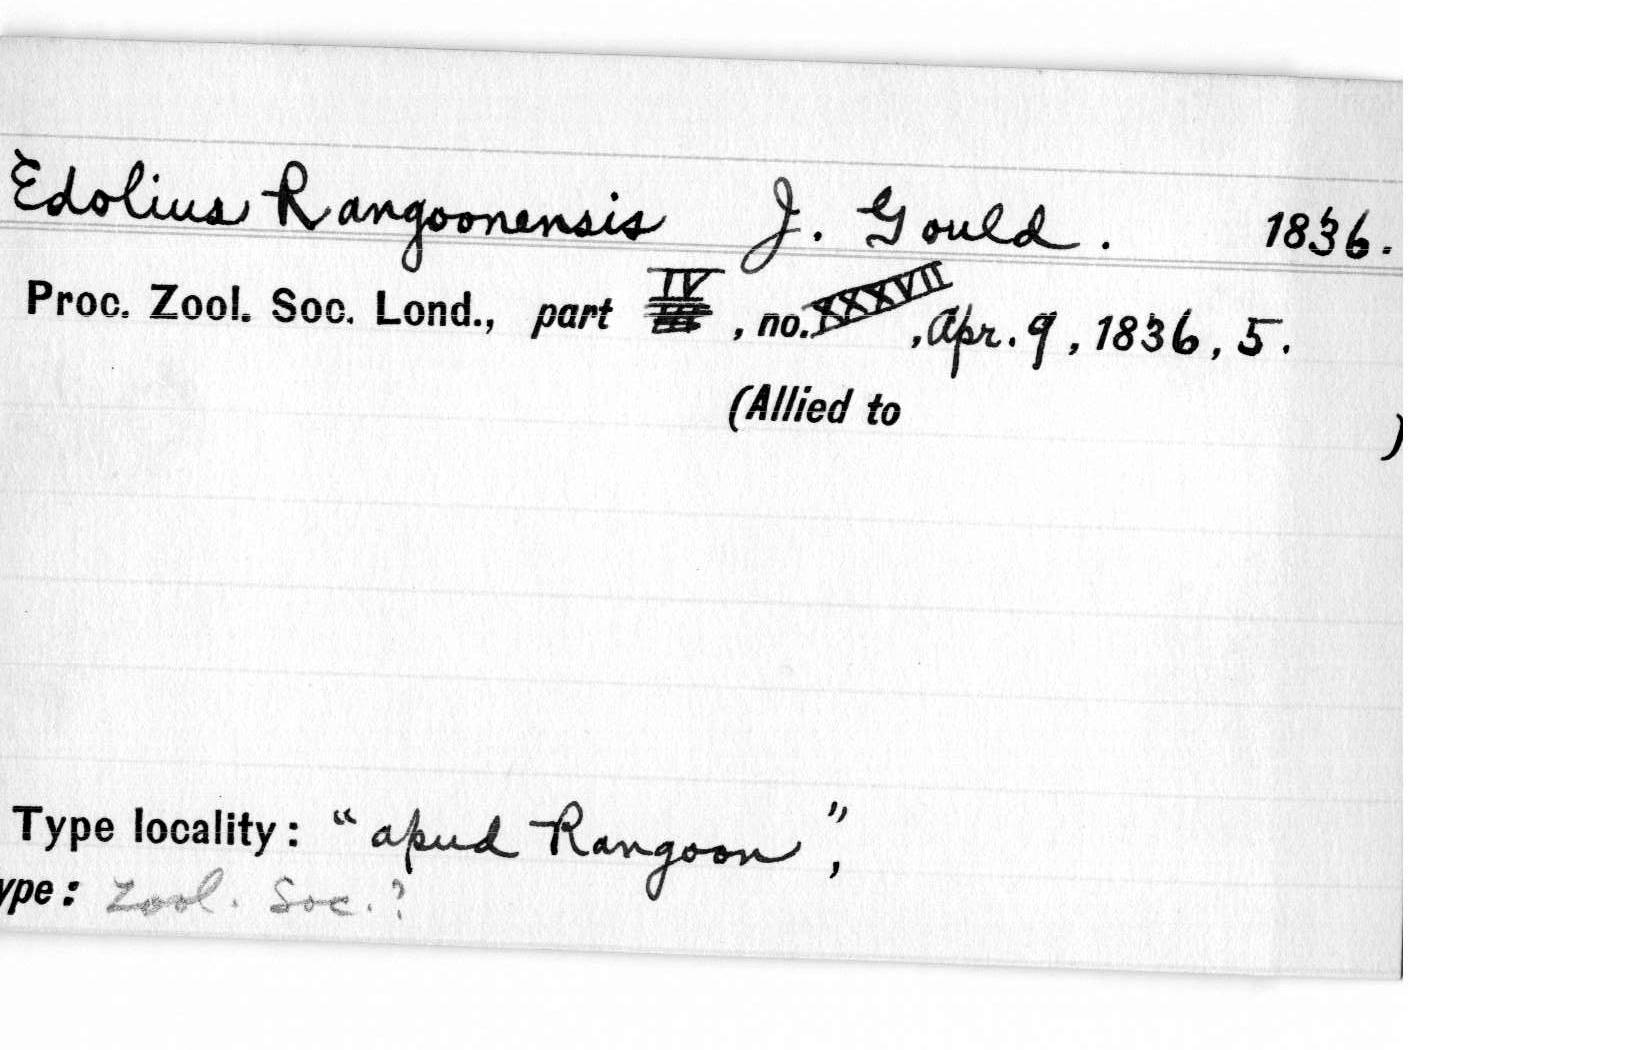 Edolius Rangoonensis J. Gould. 1836.
Proc. Zool. Soc. Lond., part IV, no. XXXVII, Apr. 9, 1836, 5.
(Allied to )
Type locality: "apud Rangoon",
ype: Zool. Soc.?